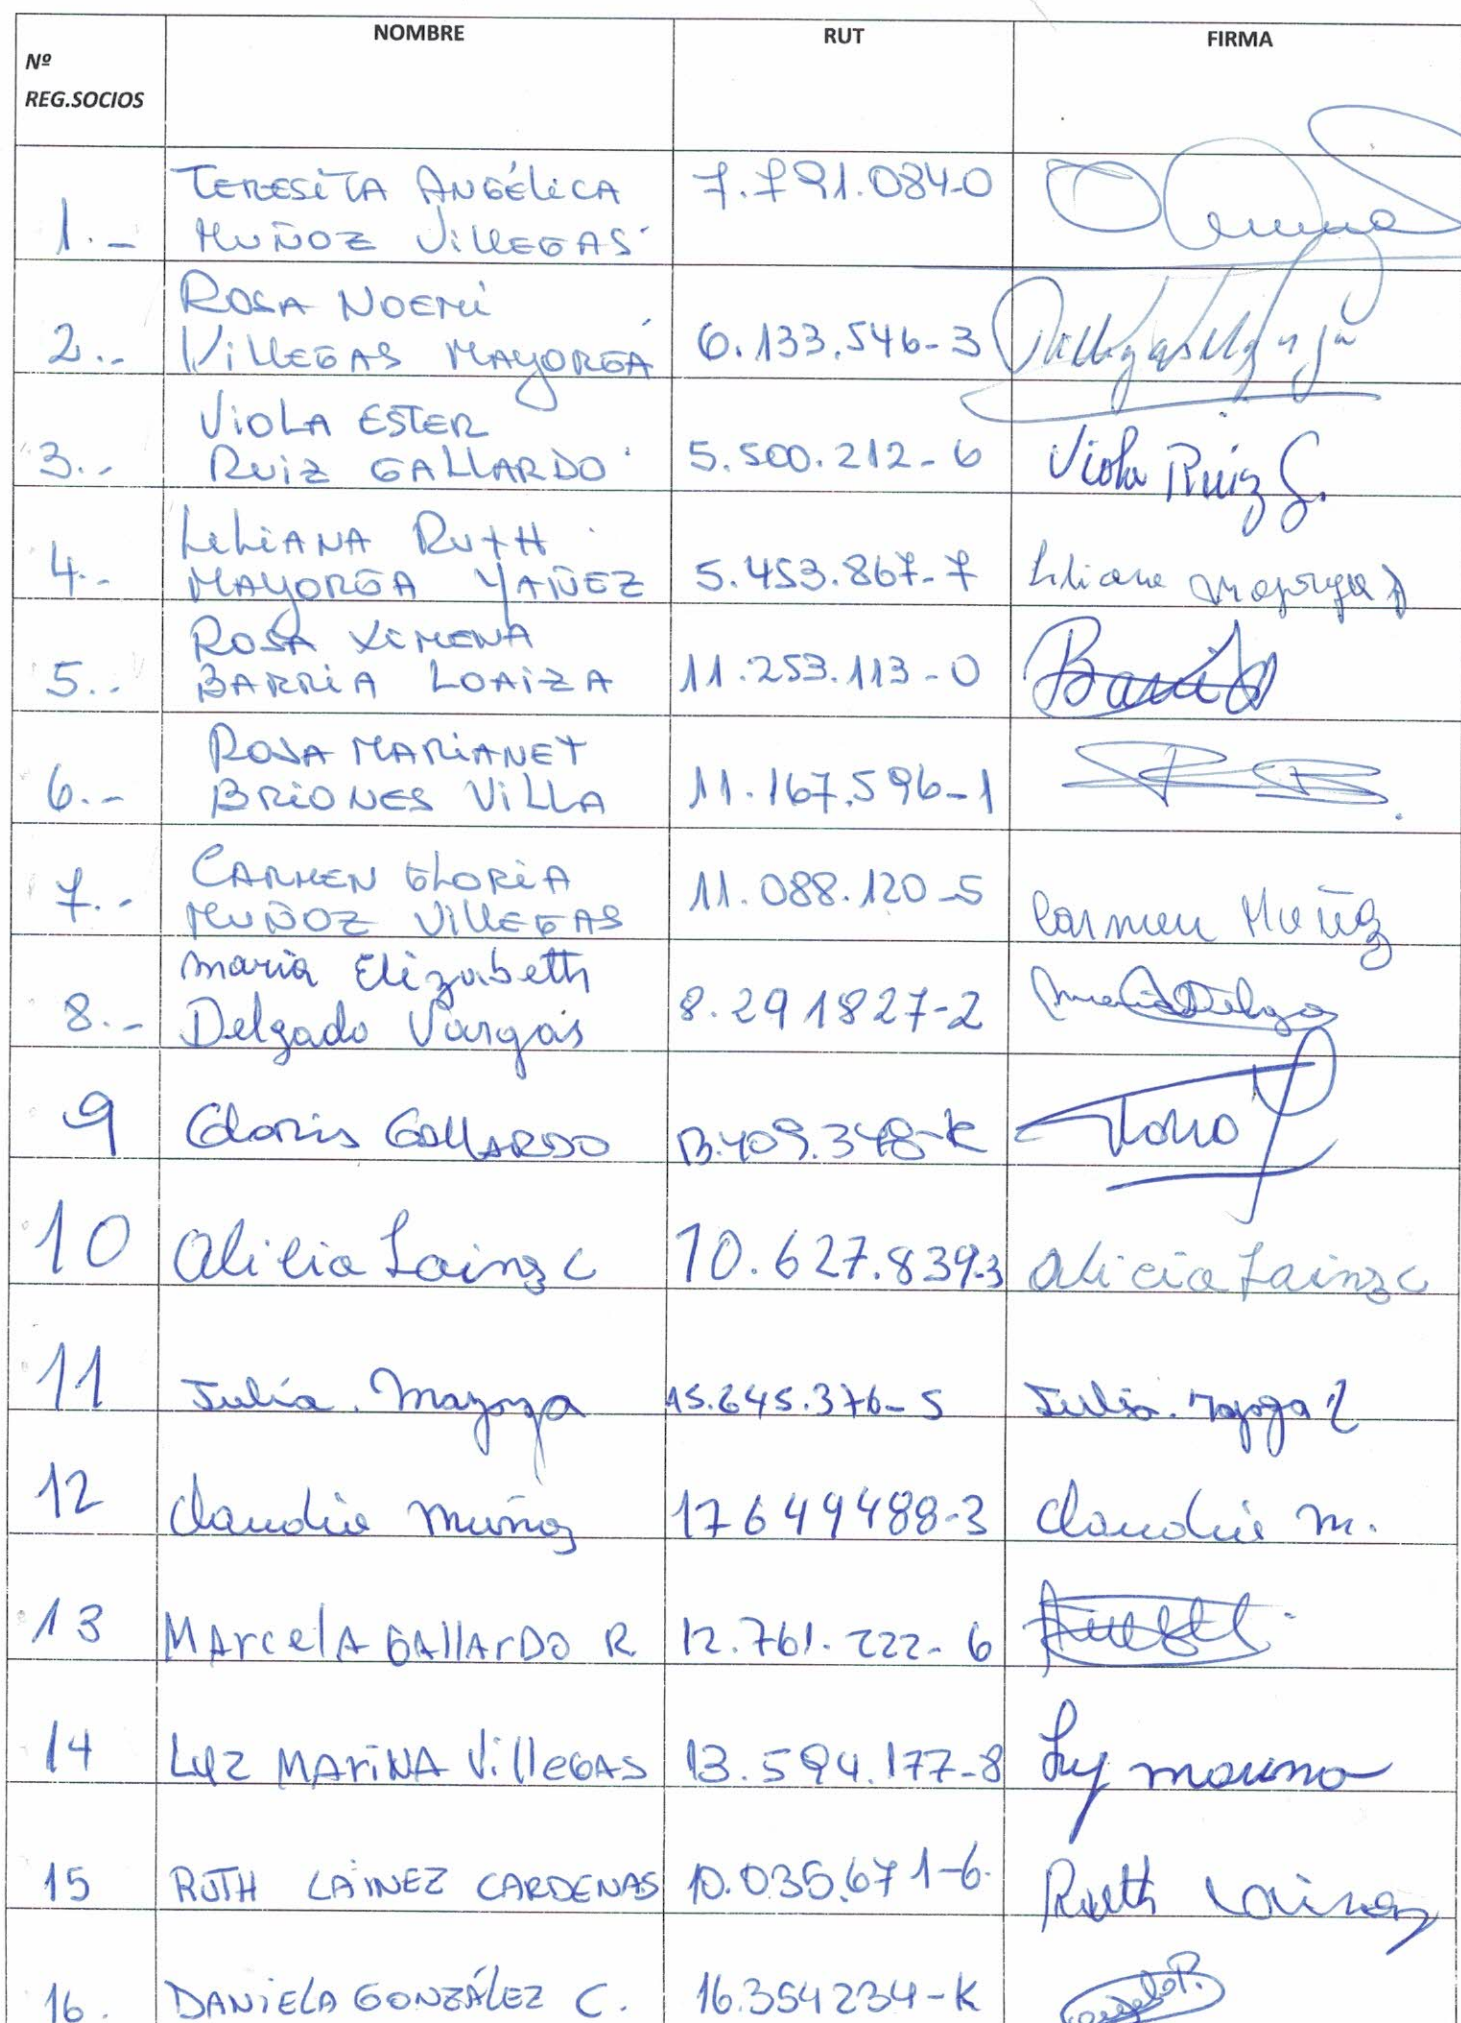 Nº
REG.SOCIOS
NOMBRE
RUT
FIRMA
1.-
TERESITA ANGÉLICA
MUÑOZ VILLEGAS
7.791.084-0
2.-
ROSA NOEMÍ
VILLEGAS MAYORGA
6.133.546-3
3.-
VIOLA ESTER
RUIZ GALLARDO
5.500.212-6
Viola Ruiz G.
4.-
LILIANA RUTH
MAYORGA YAÑEZ
5.453.867-7
Liliana Mayorga
5.-
ROSA XIMENA
BARRIA LOAIZA
11.253.113-0
6.-
ROSA MARIANET
BRIONES VILLA
11.167.596-1
7.-
CARMEN GLORIA
MUÑOZ VILLEGAS
11.088.120-5
Carmen Muñoz
8.-
maria Elizabeth
Delgado Vargas
8.291827-2
9
Gloris GALLARDO
13.409.348-K
10
Alicia Lainez C
10.627.839-3
Alicia Lainez C
11
Julia. Mayorga
15.645.376-5
Julia.
12
Claudia Muñoz
17649488-3
Claudia M.
13
MArcelA GAllArDO R
12.761.222-6
14
LUZ MARiNA VillEGAS
13.594.177-8
Luz marina
15
RUTH LAINEZ CARDENAS
10.035.671-6.
Ruth Lainez
16.
DANIELA GONZÁLEZ C.
16.354234-K